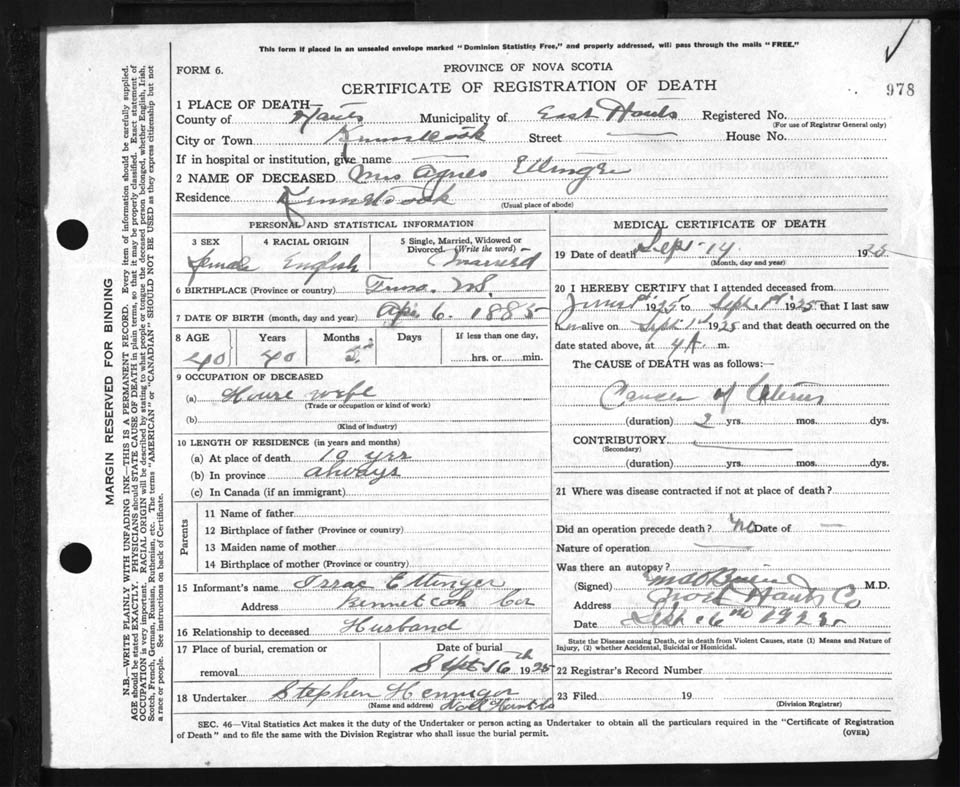 This form if placed in an unsealed envelope marked "Dominion Statistics Free," and properly addressed, will pass through the mails "FREE."
FORM 6.
PROVINCE OF NOVA SCOTIA
CERTIFICATE OF REGISTRATION OF DEATH
978
1 PLACE OF DEATH—
County of Hants Municipality of East Hants Registered No.
(For use of Registrar General only)
City or Town Kennetcook Street House No.
If in hospital or institution, give name
2 NAME OF DECEASED Mrs Agnes Ettinger
Residence Kennetcook
(Usual place of abode)
PERSONAL AND STATISTICAL INFORMATION
3 SEX 4 RACIAL ORIGIN 5 Single, Married, Widowed or Divorced. (Write the word)
female English Married
6 BIRTHPLACE (Province or country) Truro. N.S.
7 DATE OF BIRTH (month, day and year) Apr. 6. 1885
8 AGE Years Months Days If less than one day,
40 40 5 hrs. or min.
9 OCCUPATION OF DECEASED
(a) House wife
(Trade or occupation or kind of work)
(b)
(Kind of industry)
10 LENGTH OF RESIDENCE (in years and months)
(a) At place of death 10 yrs
(b) In province always
(c) In Canada (if an immigrant)
Parents
11 Name of father
12 Birthplace of father (Province or country)
13 Maiden name of mother
14 Birthplace of mother (Province or country)
15 Informant's name Isaac Ettinger
Address Kennetcook Cor
16 Relationship to deceased Husband
17 Place of burial, cremation or removal Date of burial
Sept 16th 1925
18 Undertaker Stephen Hennigar
(Name and address) Noel Hants Co
MEDICAL CERTIFICATE OF DEATH
19 Date of death Sept. 14. 1925
(Month, day and year)
20 I HEREBY CERTIFY that I attended deceased from
June 1st 1925 to Sept. 1st 1925 that I last saw
her alive on Sept 1st 1925 and that death occurred on the
date stated above, at 4 A. m.
The CAUSE of DEATH was as follows:—
Cancer of Uterus
(duration) 2 yrs. mos. dys.
CONTRIBUTORY
(Secondary)
(duration) yrs. mos. dys.
21 Where was disease contracted if not at place of death?
Did an operation precede death? No Date of —
Nature of operation
Was there an autopsy?
(Signed) O'Brien M.D.
Address Noel Hants Co
Date Sept 16th 1925
State the Disease causing Death, or in death from Violent Causes, state (1) Means and Nature of Injury, (2) whether Accidental, Suicidal or Homicidal.
22 Registrar's Record Number
23 Filed 19
(Division Registrar)
SEC. 46—Vital Statistics Act makes it the duty of the Undertaker or person acting as Undertaker to obtain all the particulars required in the "Certificate of Registration
of Death" and to file the same with the Division Registrar who shall issue the burial permit.
(OVER)
MARGIN RESERVED FOR BINDING
N.B.—WRITE PLAINLY WITH UNFADING INK—THIS IS A PERMANENT RECORD. Every item of information should be carefully supplied.
AGE should be stated EXACTLY. PHYSICIANS should STATE CAUSE OF DEATH in plain terms, so that it may be properly classified. Exact statement of
OCCUPATION is very important. RACIAL ORIGIN will be described by stating to what people or tongue the deceased person belonged, whether English, Irish,
Scotch, French, German, Russian, Ruthenian, etc. The terms "AMERICAN" or "CANADIAN" SHOULD NOT BE USED as they express citizenship but not
a race or people. See instructions on back of Certificate.